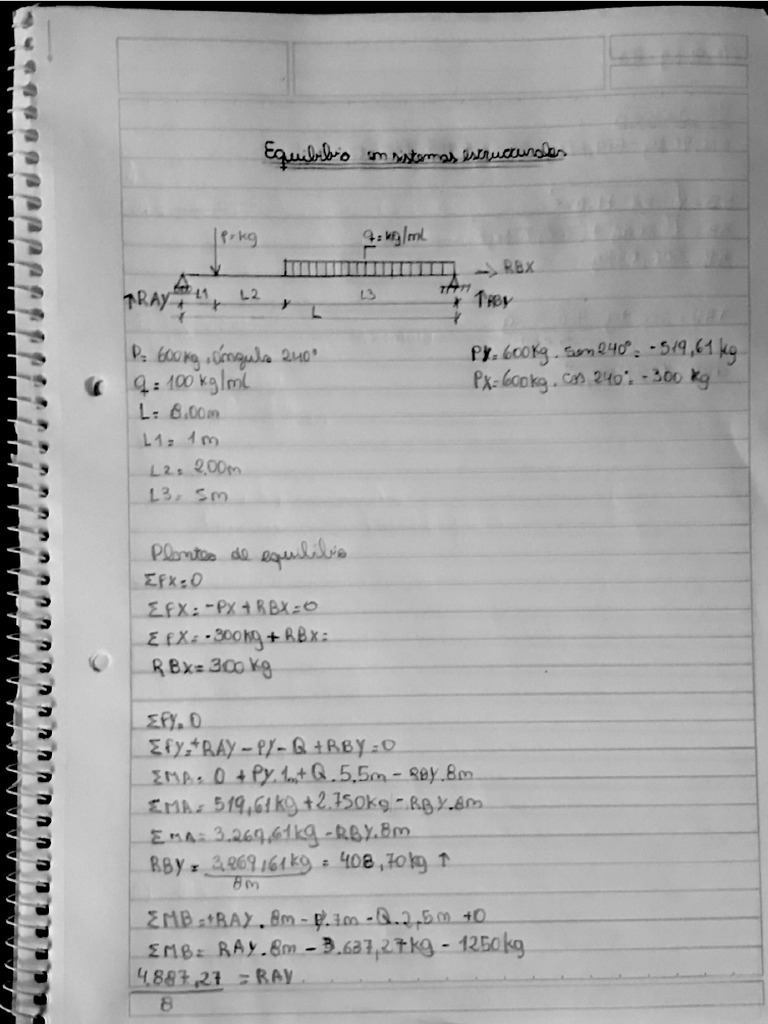 Equilibrio en sistemas estructurales
P=kg
q=kg/ml
→ RBX
↑RAY L1 L2 L3 ↑RBY
L
P= 600kg, ángulo 240° PY= 600kg . sen 240°= -519,61 kg
q= 100 kg/ml PX= 600kg . cos 240°= -300 kg
L= 8.00m
L1= 1m
L2= 2.00m
L3= 5m
Planteo de equilibrio
ΣFX=0
ΣFX= -PX + RBX=0
ΣFX= -300kg + RBX=
RBX= 300 kg
ΣFY=0
ΣFY=+RAY - PY - Q + RBY=0
ΣMA= 0 + PY.1m + Q . 5,5m - RBY. 8m
ΣMA= 519,61kg + 2.750kg - RBY. 8m
ΣMA= 3.269,61kg - RBY. 8m
RBY= 3.269,61kg = 408,70kg ↑
8m
ΣMB=+RAY. 8m - P.7m - Q.2,5m +0
ΣMB= RAY. 8m - 3.637,27kg - 1250kg
4.887,27 = RAY
8